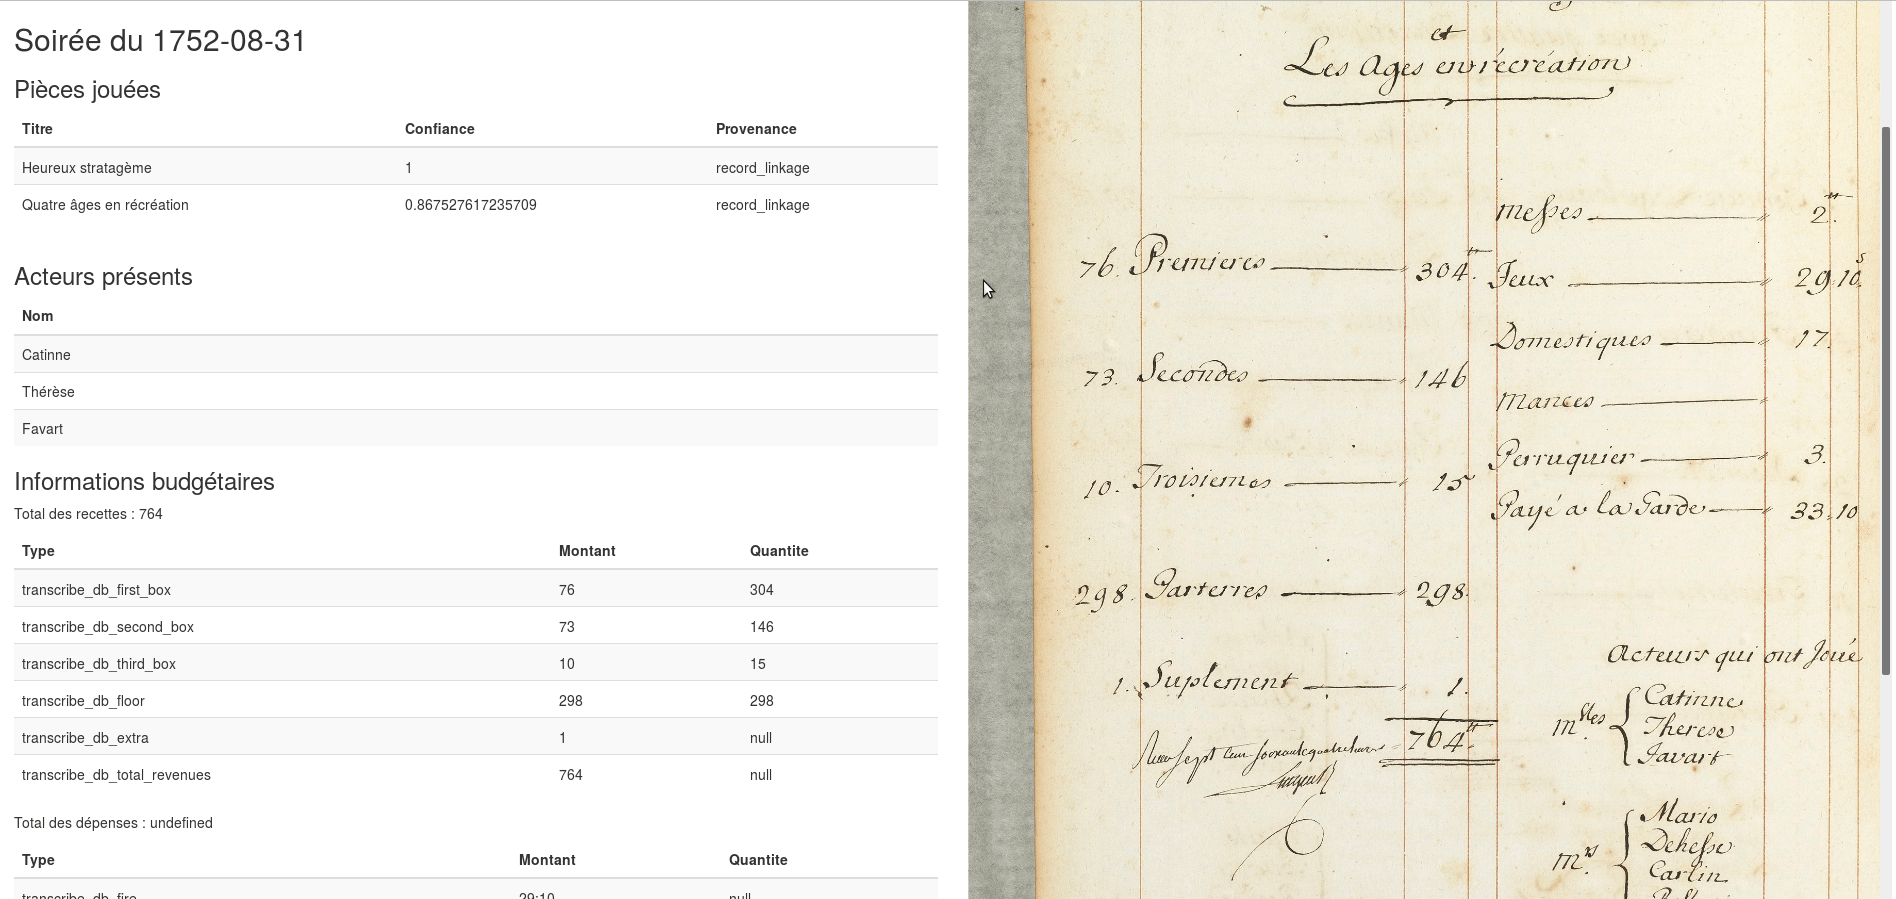 Soirée du 1752-08-31
Pièces jouées
Titre Confiance Provenance
Heureux stratagème 1 record_linkage
Quatre âges en récréation 0.867527617235709 record_linkage
Acteurs présents
Nom
Catinne
Thérèse
Favart
Informations budgétaires
Total des recettes : 764
Type Montant Quantite
transcribe_db_first_box 76 304
transcribe_db_second_box 73 146
transcribe_db_third_box 10 15
transcribe_db_floor 298 298
transcribe_db_extra 1 null
transcribe_db_total_revenues 764 null
Total des dépenses : undefined
Type Montant Quantite
transcribe_db_fire 29:10 null
et
Les Ages en récréation
76. Premieres 304tt
73. Secondes 146
10. Troisiemes 15
298. Parterres 298.
1. Suplement 1.
764tt
Messes 2.tt
Feux 29.10s
Domestiques 17.
Mances
Perruquier 3.
Payé a la Garde 33.10
Acteurs qui ont Joué
Mlles
Catinne
Therese
Favart
Mrs
Mario
Dehesse
Carlin